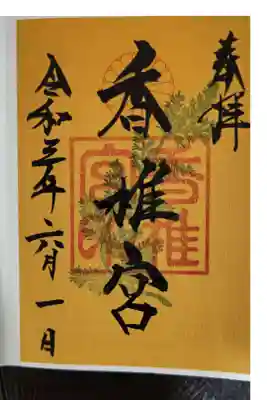 奉拝
香椎宮
香椎宮印
令和三年六月一日